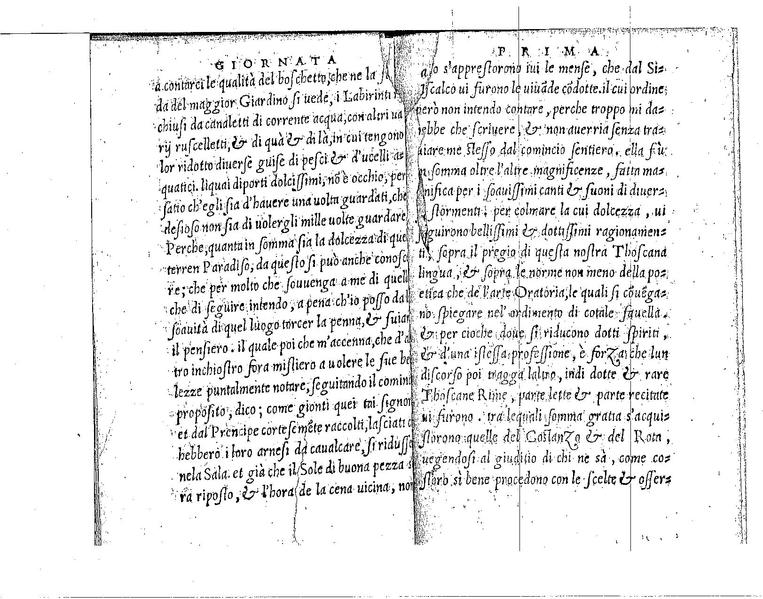 GIORNATA
à contarci le qualità del boschetto, che ne la
da del maggior Giardino si uede, i Labirinti
chiusi da canaletti di corrente acqua, con altri ua
rij ruscelletti, & di quà & di là, in cui tengono
lor ridotto diuerse guise di pesci & d'ucelli a-
quatici. liquai diporti dolcissimi, nō è occhio, per
satio ch'egli sia d'hauere una uolta guardati, che
desioso non sia di uolergli mille uolte guardare
Perche, quanta in somma sia la dolcezza di que
terren Paradiso, da questo si può anche conosc
re; che per molto che souuenga a me di quell
che di seguire intendo, a pena ch'io posso dal
soauità di quel luogo torcer la penna, & suiar
il pensiero. il quale poi che m'accenna, che d'a
tro inchiostro fora mistiero a uolere le sue be
lezze puntalmente notare, seguitando il cominc
proposito, dico; come gionti quei tai signor
et dal Prencipe cortesemēte raccolti, lasciati c
hebbero i loro arnesi da caualcare, si riduss
nela Sala. et già che il Sole di buona pezza s
ra riposto, & l'hora de la cena uicina, non
PRIMA
s'apprestorono iui le mense, che dal Si-
scalco ui furono le uiuāde cōdotte. il cui ordine
però non intendo contare, perche troppo mi da-
rebbe che scriuere, & non auerria senza tra-
uiare me stesso dal comincio sentiero. ella fù
in somma oltre l'altre magnificenze, fatta ma-
gnifica per i soauissimi canti & suoni di diuer-
si stormenti: per colmare la cui dolcezza, ui
seguirono bellissimi & dottissimi ragionamen-
ti, sopra il pregio di questa nostra Thoscana
lingua, & sopra le norme non meno della po-
etica che de l'arte Oratoria, le quali si cōuega-
no spiegare nel'ordimento di cotale fauella.
& per cioche doue si riducono dotti spiriti,
& d'una istessa professione, è forza che lun
discorso poi tragga laltro, indi dotte & rare
Thoscane Rime, parte lette & parte recitate
ui furono. tra lequali somma gratia s'acqui-
storono quelle del Costanzo & del Rota,
uegendosi al giuditio di chi ne sà, come co-
storo sì bene procedono con le scelte & osser-